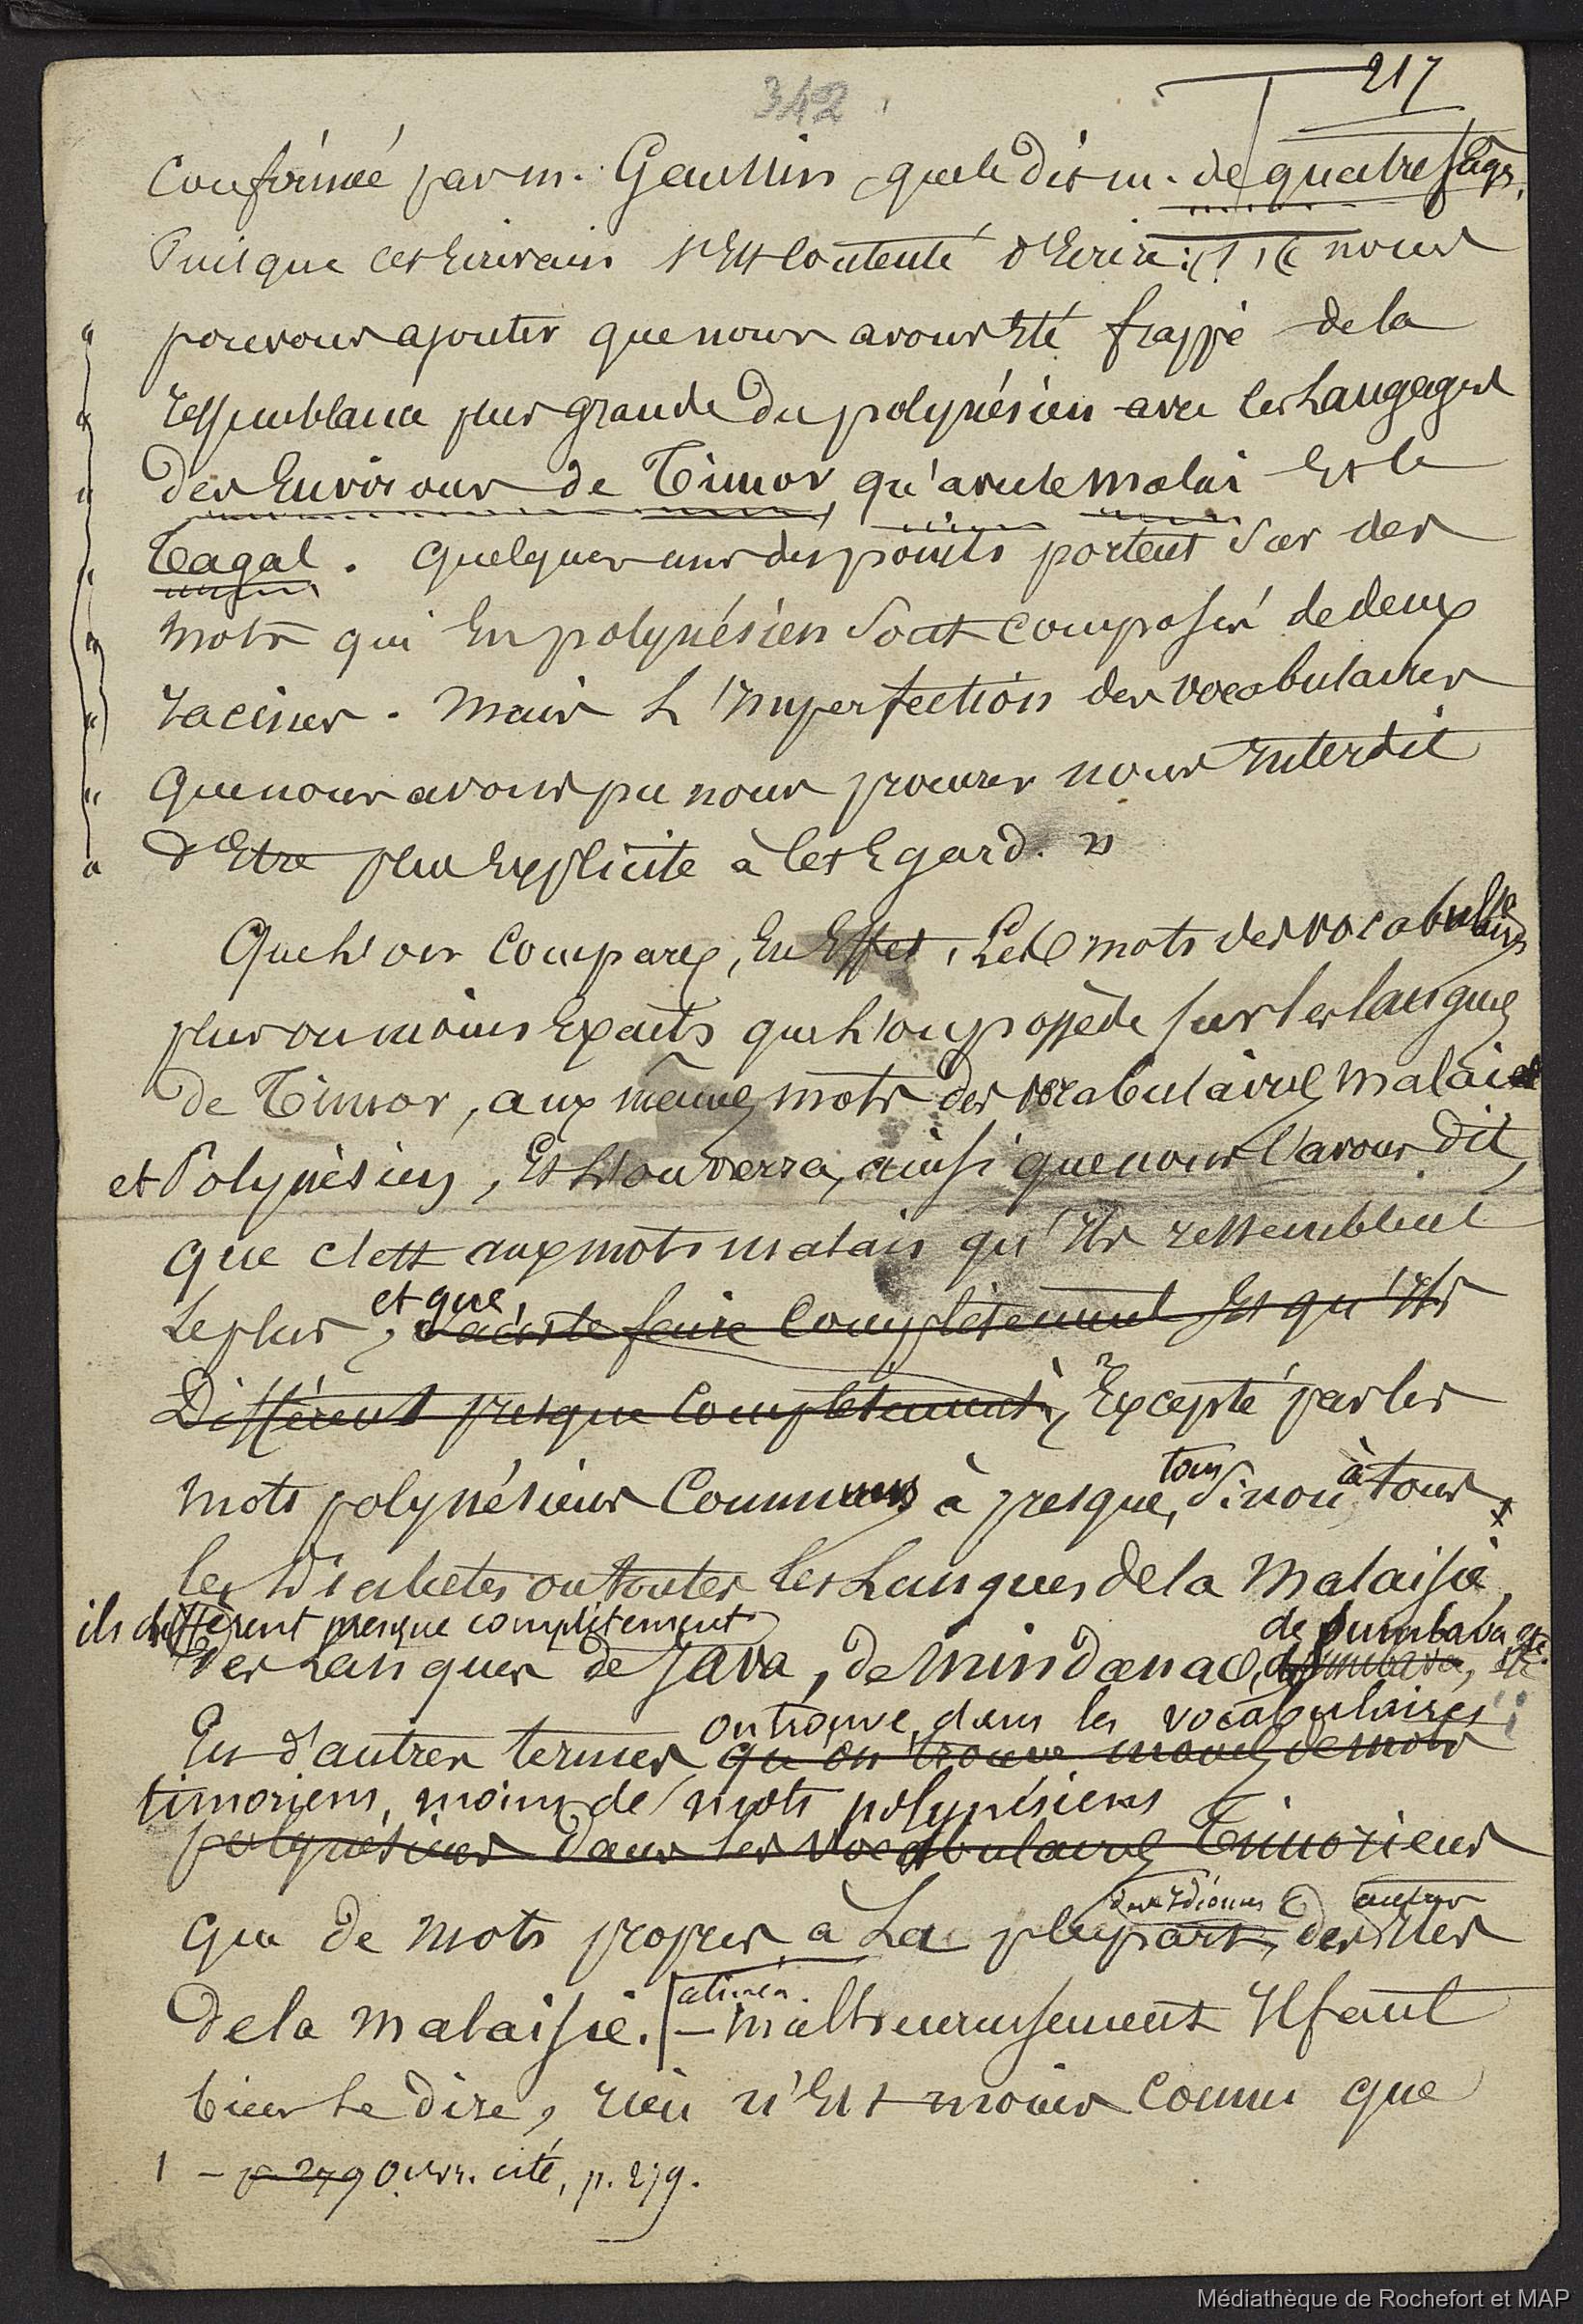 217
342
Confirmée par m. Gaussin, que le dit m. de quatrefages,
Puisque cet Ecrivain s'Est Contenté d'Ecrire: (1) « nous
pouvons ajouter que nous avons Eté frappé de la
ressemblance plus grande du polynésien avec les Langages
des Environs de Timor, qu'avec le malai Et le
Tagal. Quelques uns des points portent Sur des
mots qui En polynésien Sont Composés de deux
racines. Mais L'Imperfection des vocabulaires
que nous avons pu nous procurer nous Interdit
d'Etre plus Explicite à cet Egard. »
Que L'on Compare, En Effet, Les mots des vocabulaires
plus ou moins Exacts que L'on possède sur les langues
de Timor, aux mêmes mots des vocabulaires malais
et Polynésiens, Et L'on verra, ainsi que nous l'avons dit,
que c'est aux mots malais qu'Ils ressemblent
Le plus, et que, sans le faire Complètement Et qu'Ils
Diffèrent presque Complètement, Excepté par les
mots polynésiens Communs à presque tous, Sinon à tous
les Dialectes ou toutes les Langues de la Malaisie,
ils diffèrent presque complètement
des Langues de Java, de Mindanao, de Sumbava, etc.
on trouve, dans les vocabulaires
En d'autres termes, qu'on trouve moins de mots
timoriens, moins de mots polynésiens
polynésiens dans les vocabulaires Timoriens
que de mots propres à La plupart des Idiomes des autres Iles
de la Malaisie. alinéa. – Malheureusement Il faut
bien Le dire, rien n'Est moins Connu que
1 – p 279 Ouvr. cité, p. 279.
Médiathèque de Rochefort et MAP